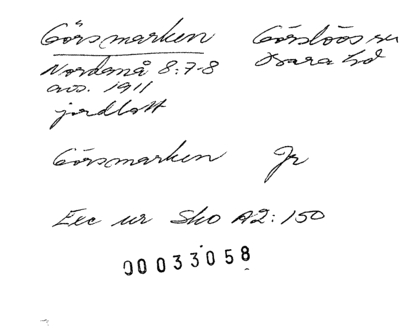 Görsmarken Görslövs sn
Nordanå 8:7-8 Bara hd
avs. 1911
jordlott
Görsmarken Jr
Exc ur Sko A2:150
00033058